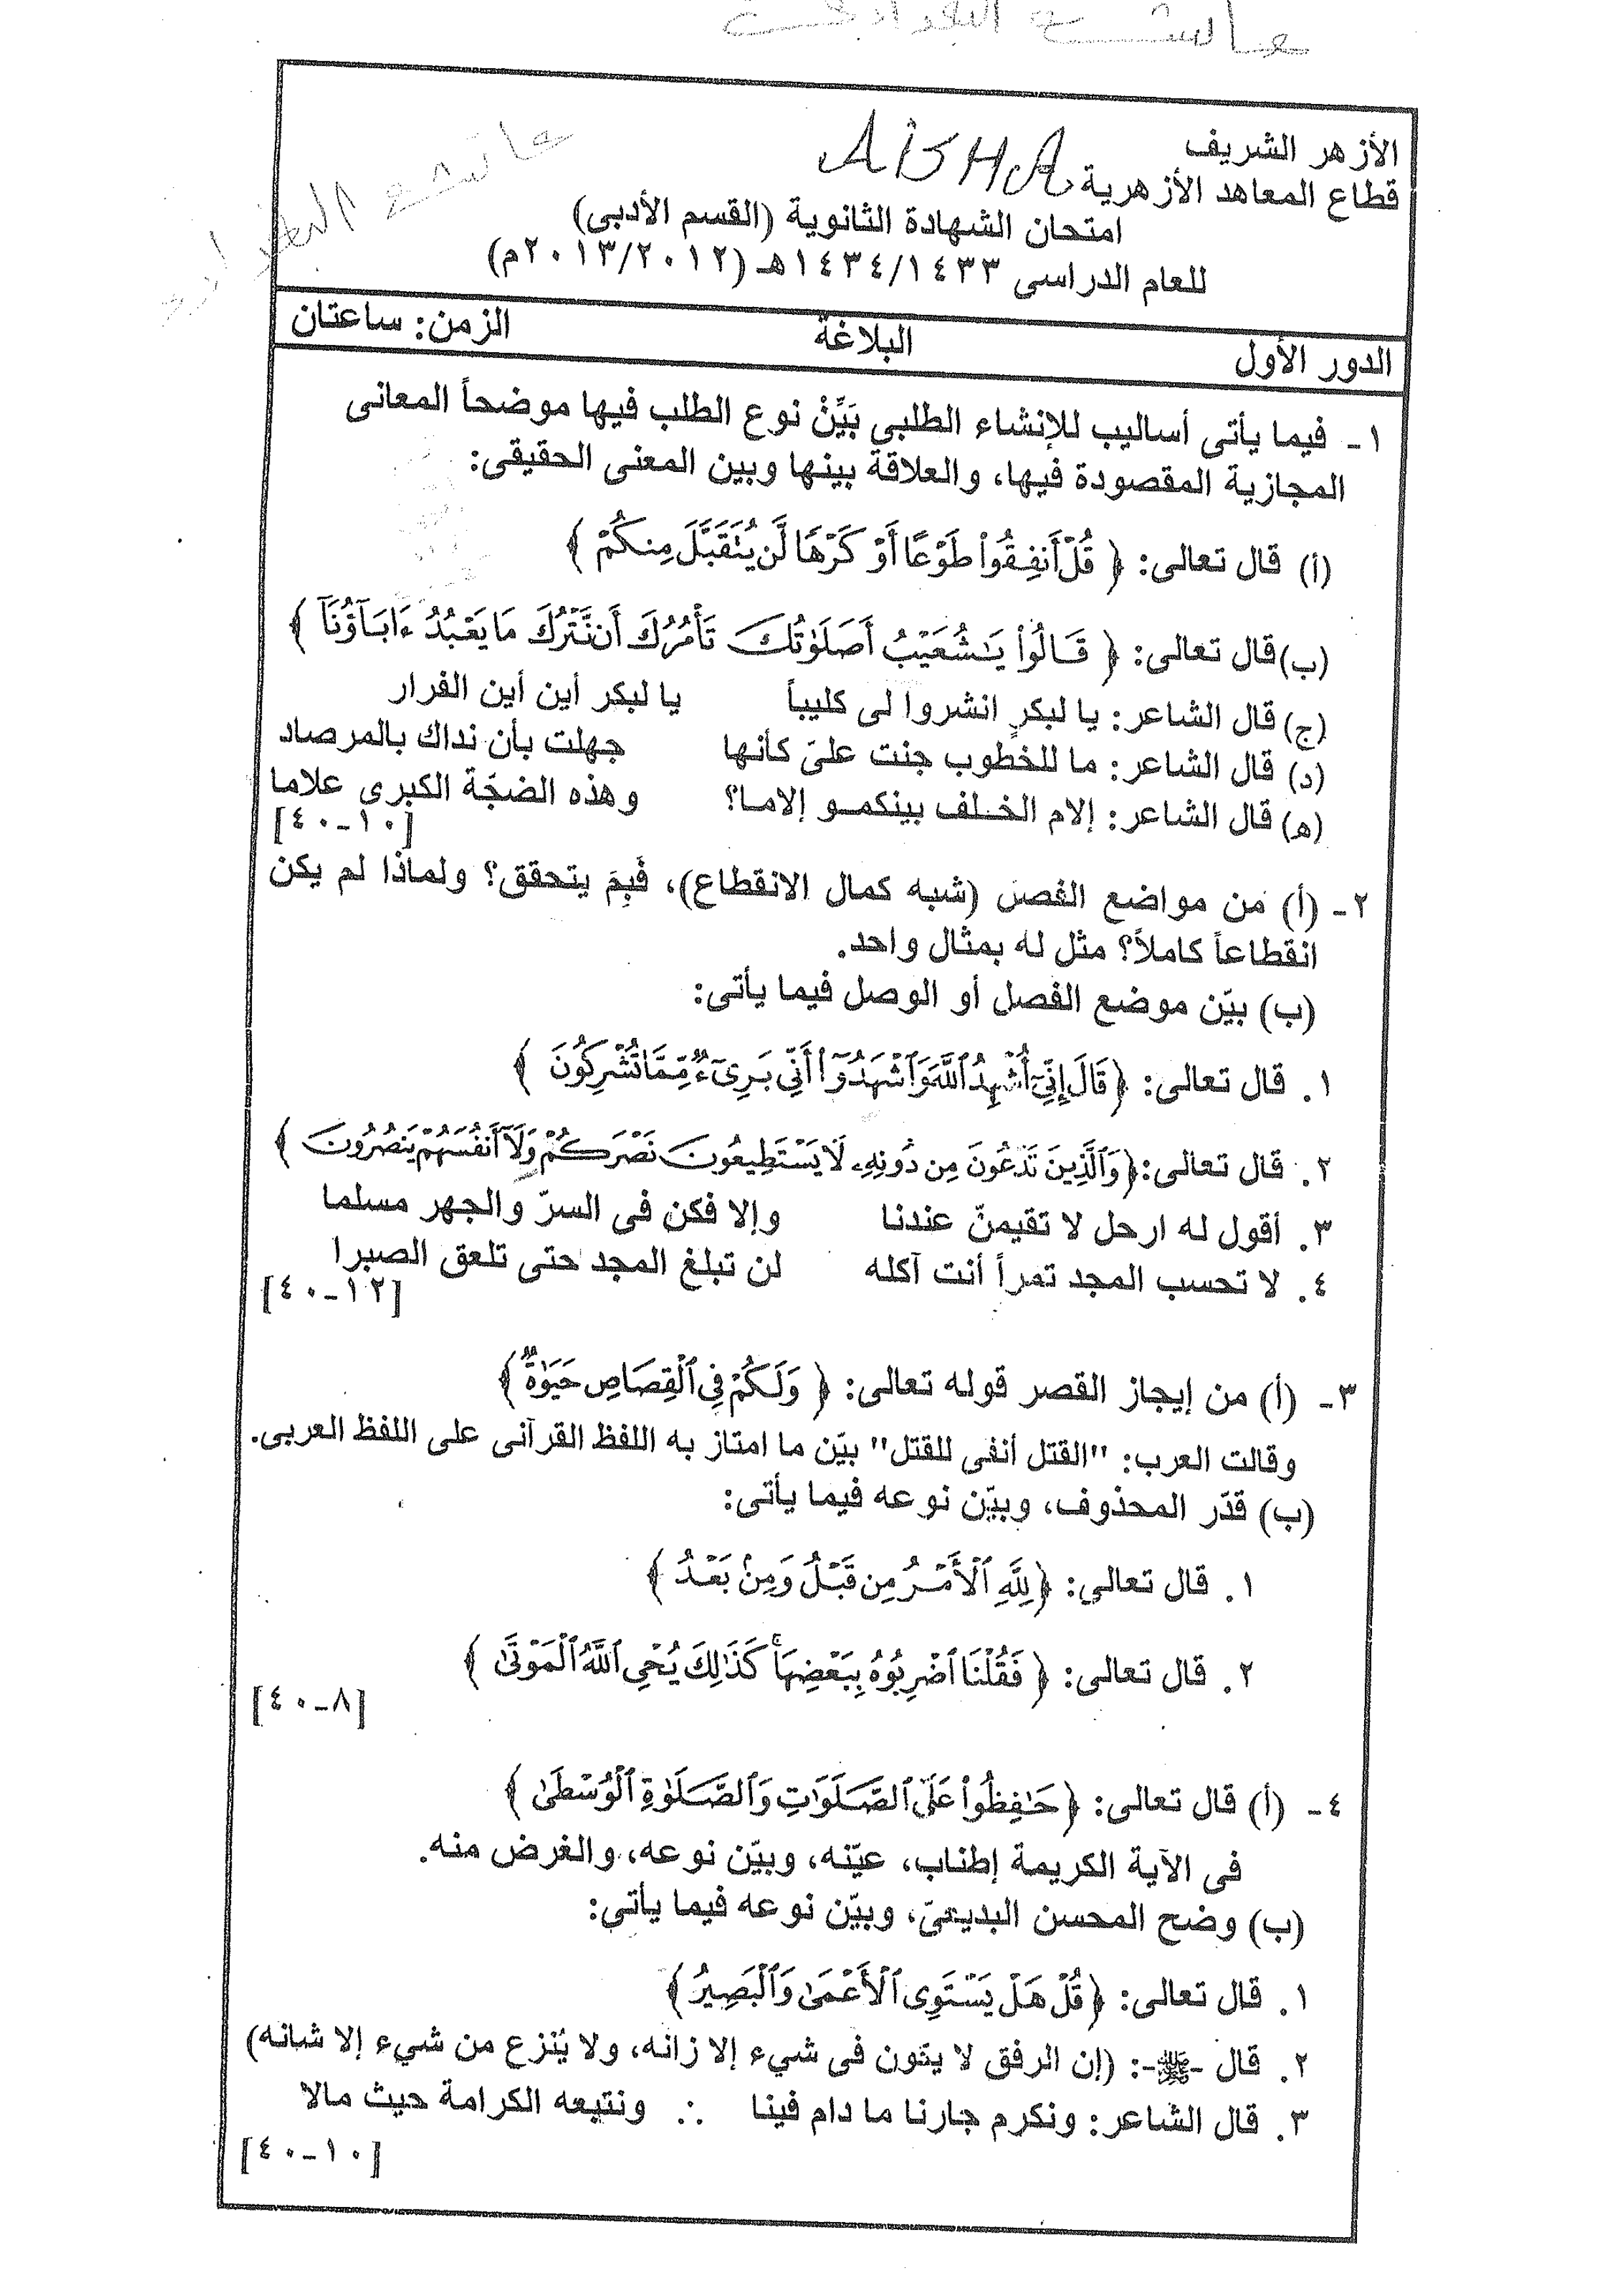 AISHA
الأزهر الشريف
قطاع المعاهد الأزهرية
امتحان الشهادة الثانوية (القسم الأدبى)
للعام الدراسى ١٤٣٤/١٤٣٣هـ (٢٠١٣/٢٠١٢م)
الدور الأول البلاغة الزمن: ساعتان
١- فيما يأتى أساليب للإنشاء الطلبى بَيِّنْ نوع الطلب فيها موضحاً المعانى
المجازية المقصودة فيها، والعلاقة بينها وبين المعنى الحقيقى:
(أ) قال تعالى: ﴿ قُلْ أَنفِقُوا۟ طَوْعًا أَوْ كَرْهًا لَّن يُتَقَبَّلَ مِنكُمْ ﴾
(ب) قال تعالى: ﴿ قَالُوا۟ يَـٰشُعَيْبُ أَصَلَوٰتُكَ تَأْمُرُكَ أَن نَّتْرُكَ مَا يَعْبُدُ ءَابَآؤُنَآ ﴾
(ج) قال الشاعر: يا لبكرٍ انشروا لى كليباً يا لبكر أين أين الفرار
(د) قال الشاعر: ما للخطوب جنت علىّ كأنها جهلت بأن نداك بالمرصاد
(هـ) قال الشاعر: إلام الخلف بينكمو إلاما؟ وهذه الضجّة الكبرى علاما
[١٠-٤٠]
٢- (أ) من مواضع الفصل (شبه كمال الانقطاع)، فَبِمَ يتحقق؟ ولماذا لم يكن
انقطاعاً كاملاً؟ مثل له بمثال واحد.
(ب) بيّن موضع الفصل أو الوصل فيما يأتى:
١. قال تعالى: ﴿ قَالَ إِنِّىٓ أُشْهِدُ ٱللَّهَ وَٱشْهَدُوٓا۟ أَنِّى بَرِىٓءٌ مِّمَّا تُشْرِكُونَ ﴾
٢. قال تعالى: ﴿ وَٱلَّذِينَ تَدْعُونَ مِن دُونِهِۦ لَا يَسْتَطِيعُونَ نَصْرَكُمْ وَلَآ أَنفُسَهُمْ يَنصُرُونَ ﴾
٣. أقول له ارحل لا تقيمنّ عندنا وإلا فكن فى السرّ والجهر مسلما
٤. لا تحسب المجد تمراً أنت آكله لن تبلغ المجد حتى تلعق الصبرا
[١٢-٤٠]
٣- (أ) من إيجاز القصر قوله تعالى: ﴿ وَلَكُمْ فِى ٱلْقِصَاصِ حَيَوٰةٌ ﴾
وقالت العرب: "القتل أنفى للقتل" بيّن ما امتاز به اللفظ القرآنى على اللفظ العربى.
(ب) قدّر المحذوف، وبيّن نوعه فيما يأتى:
١. قال تعالى: ﴿ لِلَّهِ ٱلْأَمْرُ مِن قَبْلُ وَمِنۢ بَعْدُ ﴾
٢. قال تعالى: ﴿ فَقُلْنَا ٱضْرِبُوهُ بِبَعْضِهَا ۚ كَذَٰلِكَ يُحْىِ ٱللَّهُ ٱلْمَوْتَىٰ ﴾
[٨-٤٠]
٤- (أ) قال تعالى: ﴿ حَـٰفِظُوا۟ عَلَى ٱلصَّلَوَٰتِ وَٱلصَّلَوٰةِ ٱلْوُسْطَىٰ ﴾
فى الآية الكريمة إطناب، عيّنه، وبيّن نوعه، والغرض منه.
(ب) وضح المحسن البديعىّ، وبيّن نوعه فيما يأتى:
١. قال تعالى: ﴿ قُلْ هَلْ يَسْتَوِى ٱلْأَعْمَىٰ وَٱلْبَصِيرُ ﴾
٢. قال -ﷺ-: (إن الرفق لا يكون فى شيء إلا زانه، ولا يُنزع من شيء إلا شانه)
٣. قال الشاعر: ونكرم جارنا ما دام فينا ∴ ونتبعه الكرامة حيث مالا
[١٠-٤٠]